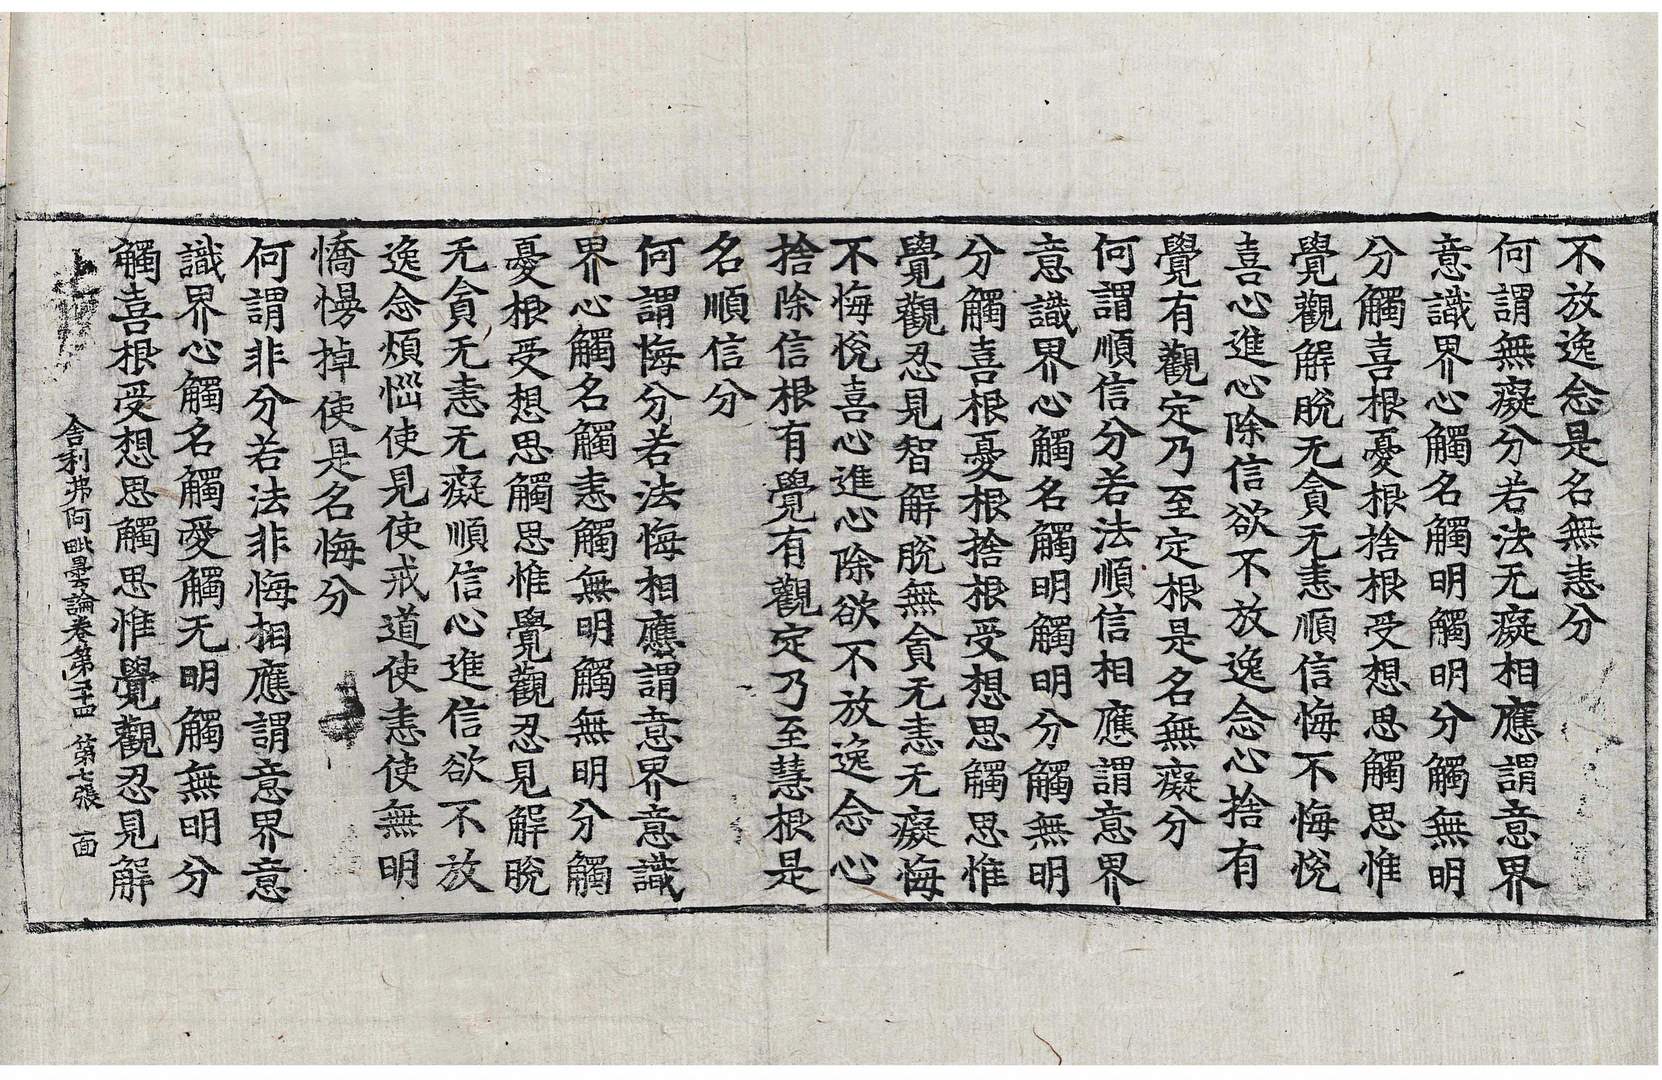 不放逸念是名無恚分
何謂無癡分若法无癡相應謂意界
意識界心觸名觸明觸明分觸無明
分觸喜根憂根捨根受想思觸思惟
覺觀解脫无貪无恚順信悔不悔悅
喜心進心除信欲不放逸念心捨有
覺有觀定乃至定根是名無癡分
何謂順信分若法順信相應謂意界
意識界心觸名觸明觸明分觸無明
分觸喜根憂根捨根受想思觸思惟
覺觀忍見智解脫無貪无恚无癡悔
不悔悅喜心進心除欲不放逸念心
捨除信根有覺有觀定乃至慧根是
名順信分
何謂悔分若法悔相應謂意界意識
界心觸名觸恚觸無明觸無明分觸
憂根受想思觸思惟覺觀忍見解脫
无貪无恚无癡順信心進信欲不放
逸念煩惱使見使戒道使恚使無明
憍慢掉使是名悔分
何謂非分若法非悔相應謂意界意
識界心觸名觸愛觸无明觸無明分
觸喜根受想思觸思惟覺觀忍見解
舍利弗阿毗曇論卷第二十四 第七張 面